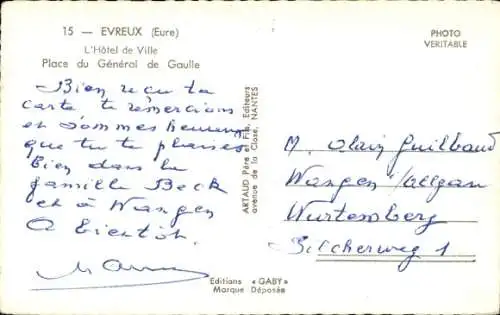 15 — EVREUX (Eure)
L'Hôtel de Ville
Place du Général de Gaulle
PHOTO
VERITABLE
Bien reçu ta
carte te remercions
et sommes heureux
que tu te plaises
bien dans la
famille Beck
et à Wangen
A bientôt.
ARTAUD Père et Fils, Editeurs
avenue de la Close, NANTES
M. Alain Guilbaud
Wangen/Allgau
Wurtemberg
Bilcherweg 1
Editions « GABY »
Marque Déposée